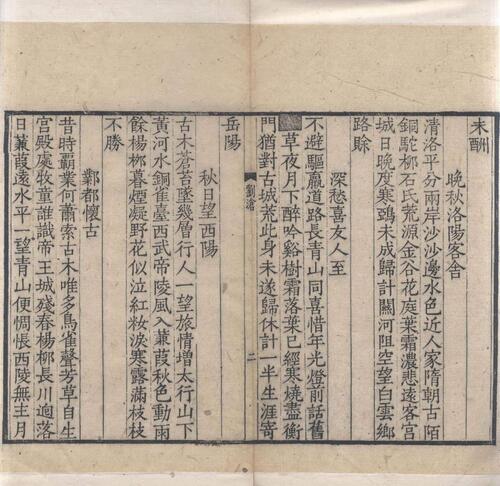 未酬
晚秋洛陽客舍
清洛平分兩岸沙沙邊水色近人家隋朝古陌
銅駝柳石氏荒源金谷花庭葉霜濃悲遠客宮
城日晚度寒鴉未成歸計關河阻空望白雲鄉
路賒
深愁喜友人至
不避驅羸道路長青山同喜惜年光燈前話舊
草夜月下醉吟谿樹霜落葉已經寒燒盡衡
門猶對古城荒此身未遂歸休計一半生涯寄
岳陽
劉滄
二
秋日望西陽
古木蒼苔墜幾層行人一望旅情增太行山下
黃河水銅雀臺西武帝陵風入蒹葭秋色動雨
餘楊柳暮煙凝野花似泣紅粧淚寒露滿枝枝
不勝
鄴都懷古
昔時霸業何蕭索古木唯多鳥雀聲芳草自生
宮殿處牧童誰識帝王城殘春楊柳長川迥落
日蒹葭遠水平一望青山便惆悵西陵無主月